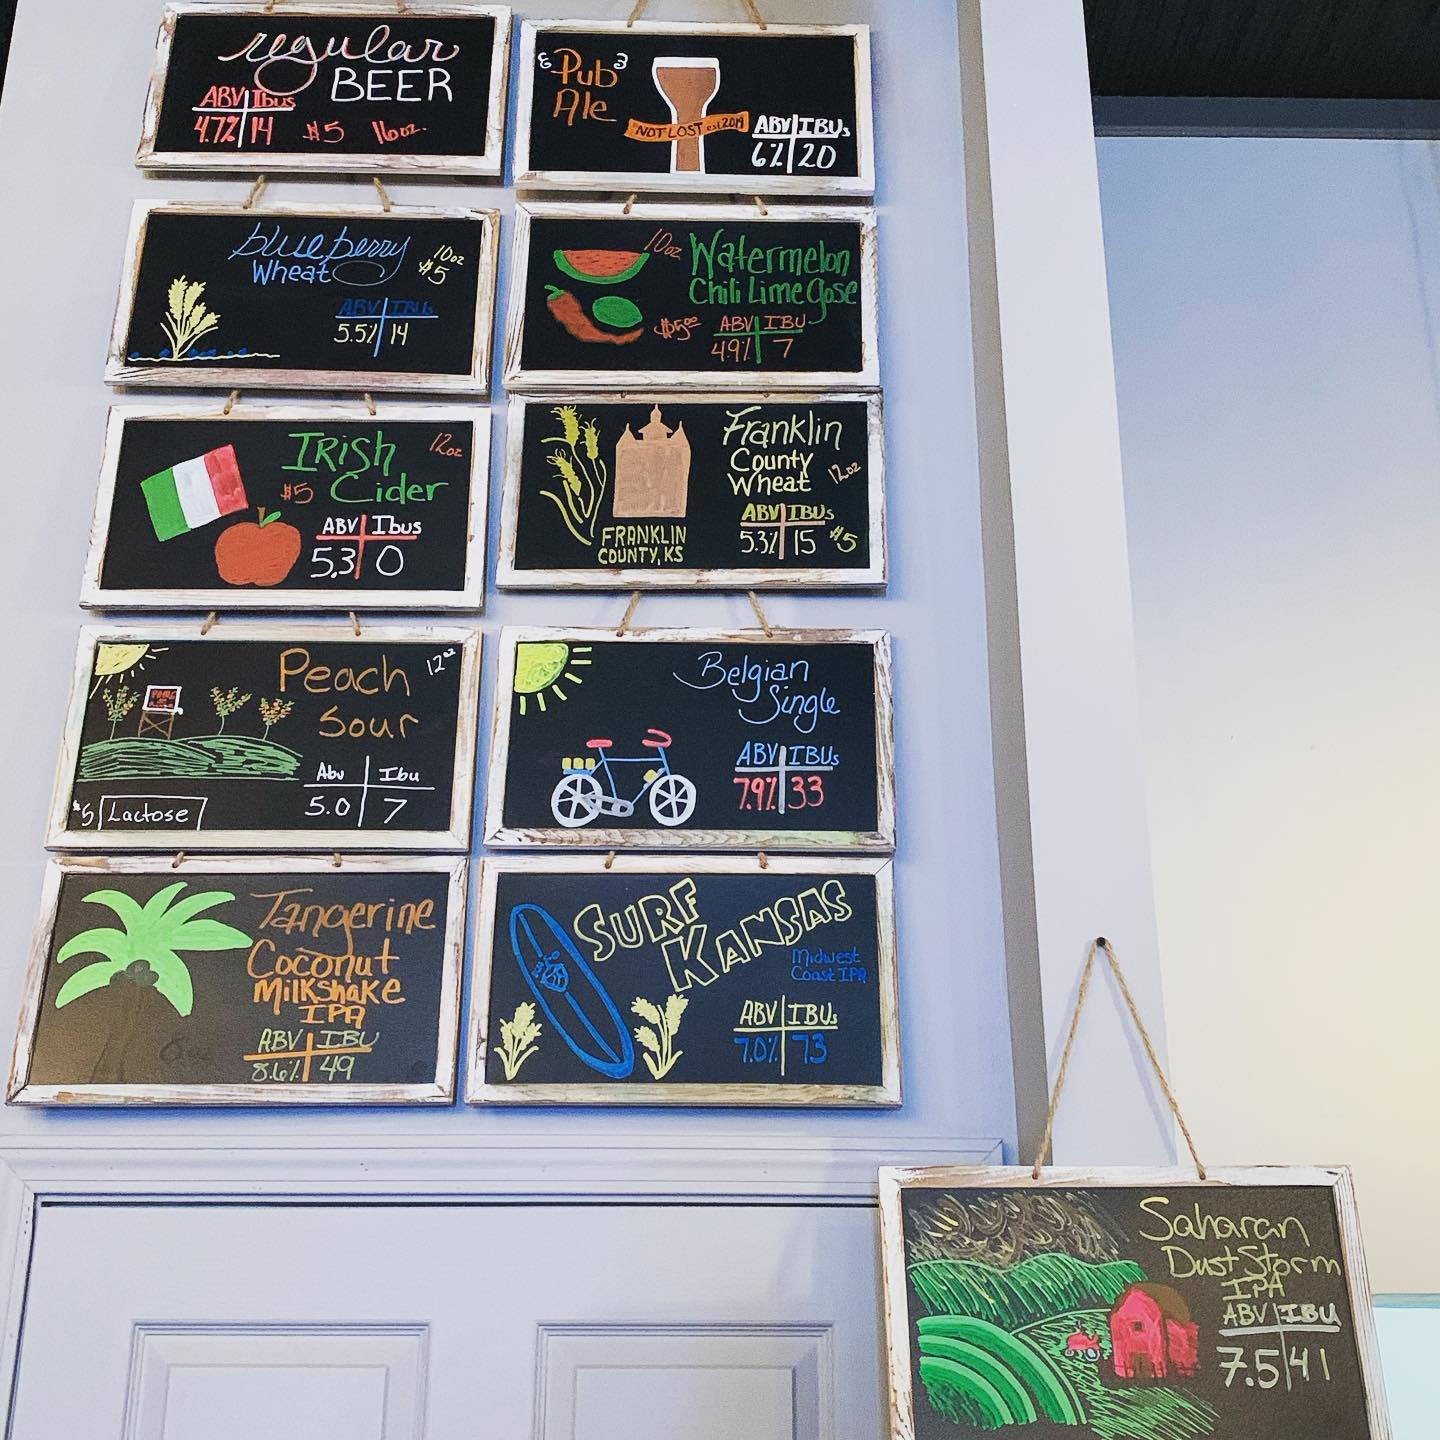 regular
BEER
ABV Ibus
4.7% 14 $5 16oz.
Pub
Ale
NOT LOST est 2019
ABV IBUs
6% 20
blueberry
Wheat
10oz
$5
ABV IBUs
5.5% 14
10oz
Watermelon
Chili Lime Gose
$5.00
ABV IBU
4.9% 7
Irish
Cider
12oz
$5
ABV Ibus
5.3 0
Franklin
County
Wheat
12oz
FRANKLIN
COUNTY, KS
ABV IBUs
5.3% 15 $5
Peach
Sour
12oz
Abv Ibu
5.0 7
$5 Lactose
Belgian
Single
ABV IBUs
7.9% 33
Tangerine
Coconut
Milkshake
IPA
ABV IBU
8.6% 49
SURF
KANSAS
Midwest
Coast IPA
ABV IBUs
7.0% 73
Saharan
Dust Storm
IPA
ABV IBU
7.5 41